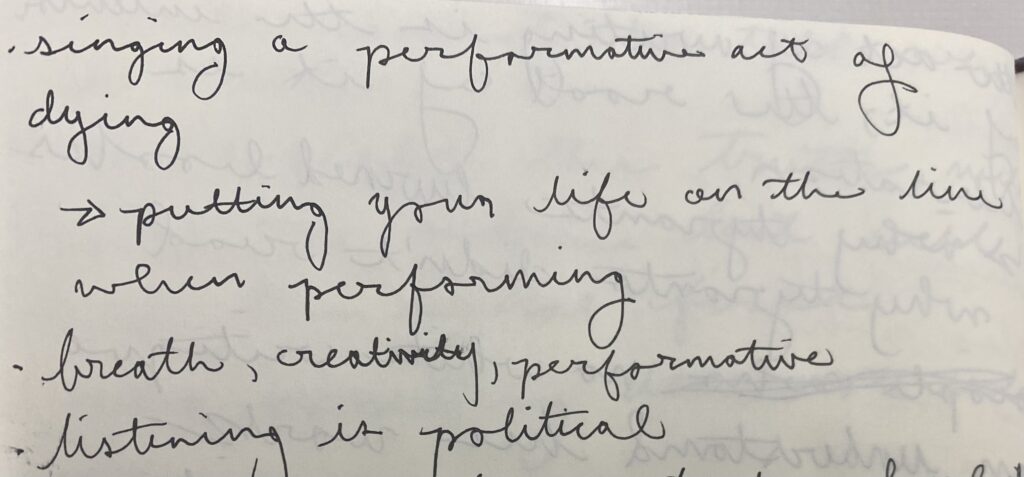 · singing a performative act of
dying
→ putting your life on the line
when performing
· breath, creativity, performative
· listening is political